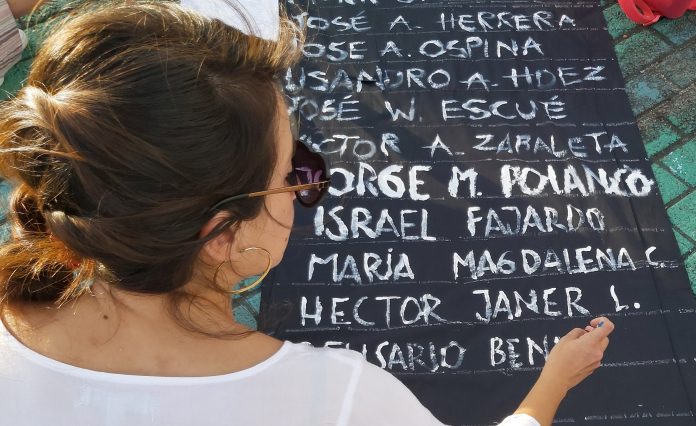 JOSÉ A. HERRERA
JOSE A. OSPINA
LISANDRO A. HDEZ
JOSÉ W. ESCUÉ
A. ZABALETA
JORGE M. POLANCO
ISRAEL FAJARDO
MARÍA MAGDALENA C.
HECTOR JANER L.